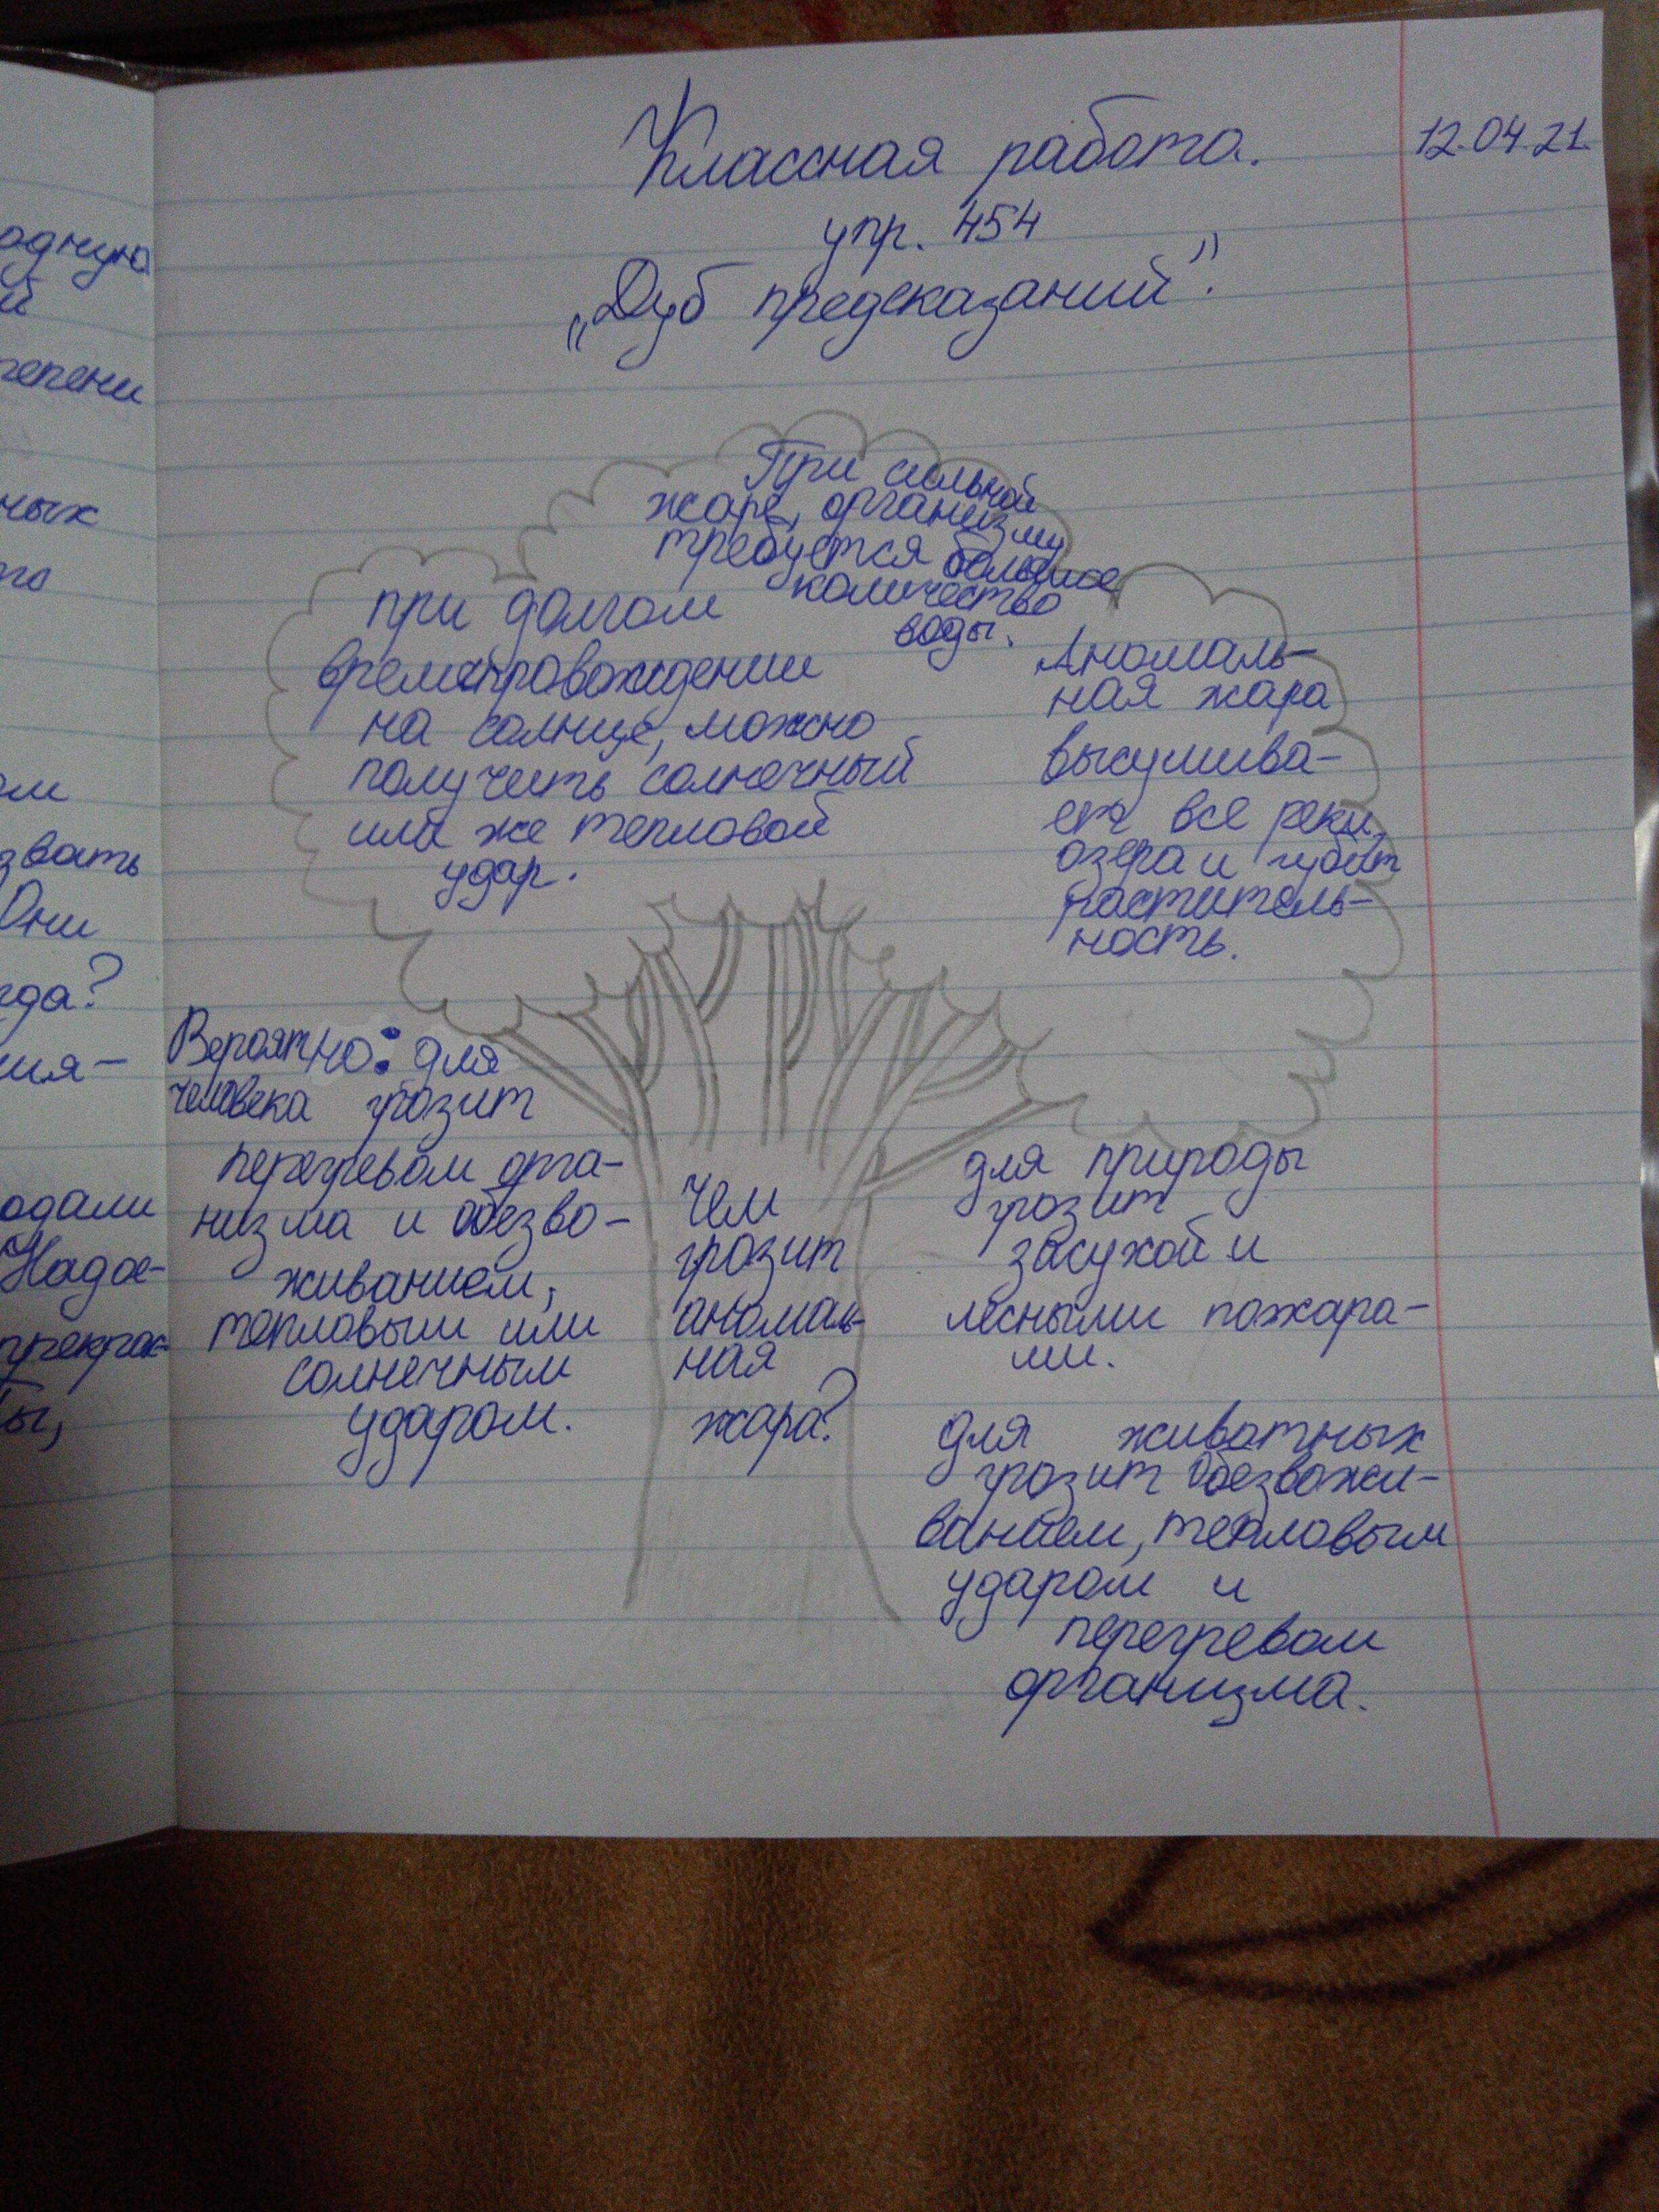 Классная работа. 12.04.21.
упр. 454
„Дуб предсказаний".
При сильной
жаре, организму
требуется большое
количество
воды.
при долгом
времяпровождении
на солнце, можно
получить солнечный
или же тепловой
удар.
Аномаль-
ная жара
высушива-
ет все реки,
озера и губит
раститель-
ность.
Вероятно: для
человека грозит
перегревом орга-
низма и обезво-
живанием,
тепловым или
солнечным
ударом.
Чем
грозит
аномаль-
ная
жара?
для природы
грозит
засухой и
лесными пожара-
ми.
для животных
грозит обезвожи-
ванием, тепловым
ударом и
перегревом
организма.
одную
й
тепени
ных
то
ом
звать
Они
гда?
ия-
одали
Надо-
прекрас-
ты,